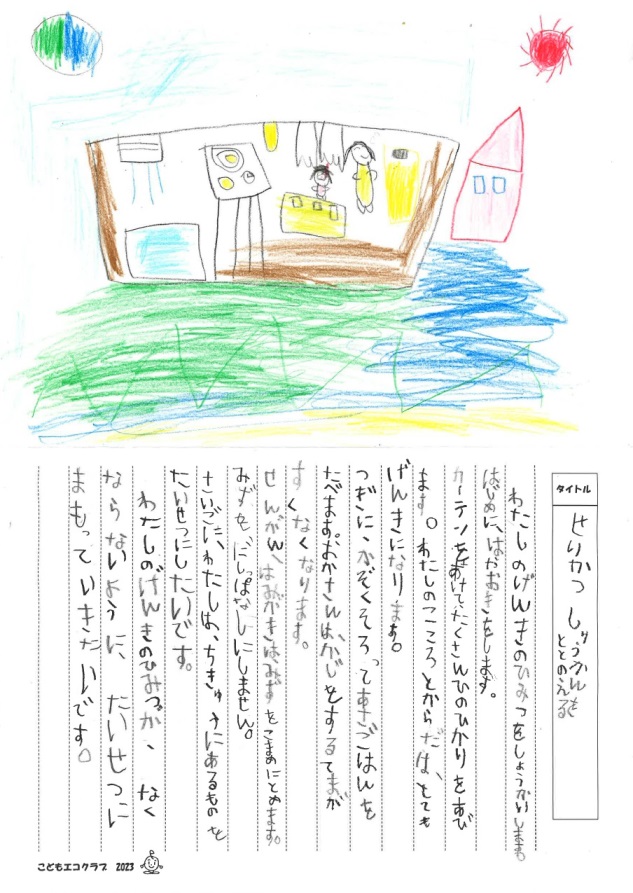 タイトル
せいかつ しゅうかんを
ととのえる
わたしのげんきのひみつをしょうかいします
はじめに、はやおきをします。
カーテンをあけてたくさんひのひかりをあび
ます。わたしのこころとからだは、とても
げんきになります。
つぎに、かぞくそろってあさごはんを
たべます。おかさんは、かじをするてまが
すくなくなります。
せんがん、はみがきはみずをこまめにとめます。
みずをだしっぱなしにしません。
さいごに、わたしは、ちきゅうにあるものを
たいせつにしたいです。
わたしのげんきのひみつが、なく
ならないように、たいせつに
まもっていきたいです。
こどもエコクラブ 2023